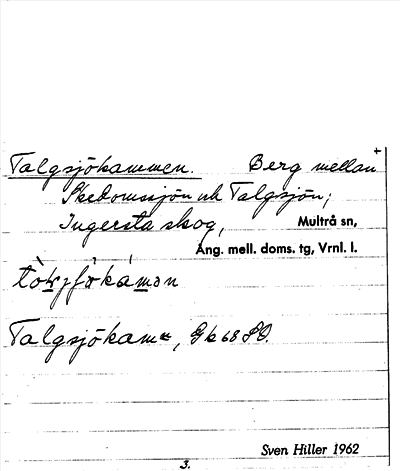 Talgsjökammen. Berg mellan
Skedomssjön och Talgsjön;
Ingersta skog, Multrå sn,
Ång. mell. doms. tg, Vrnl. l.
Talgsjökam, Gk 68 SO.
Sven Hiller 1962
3.